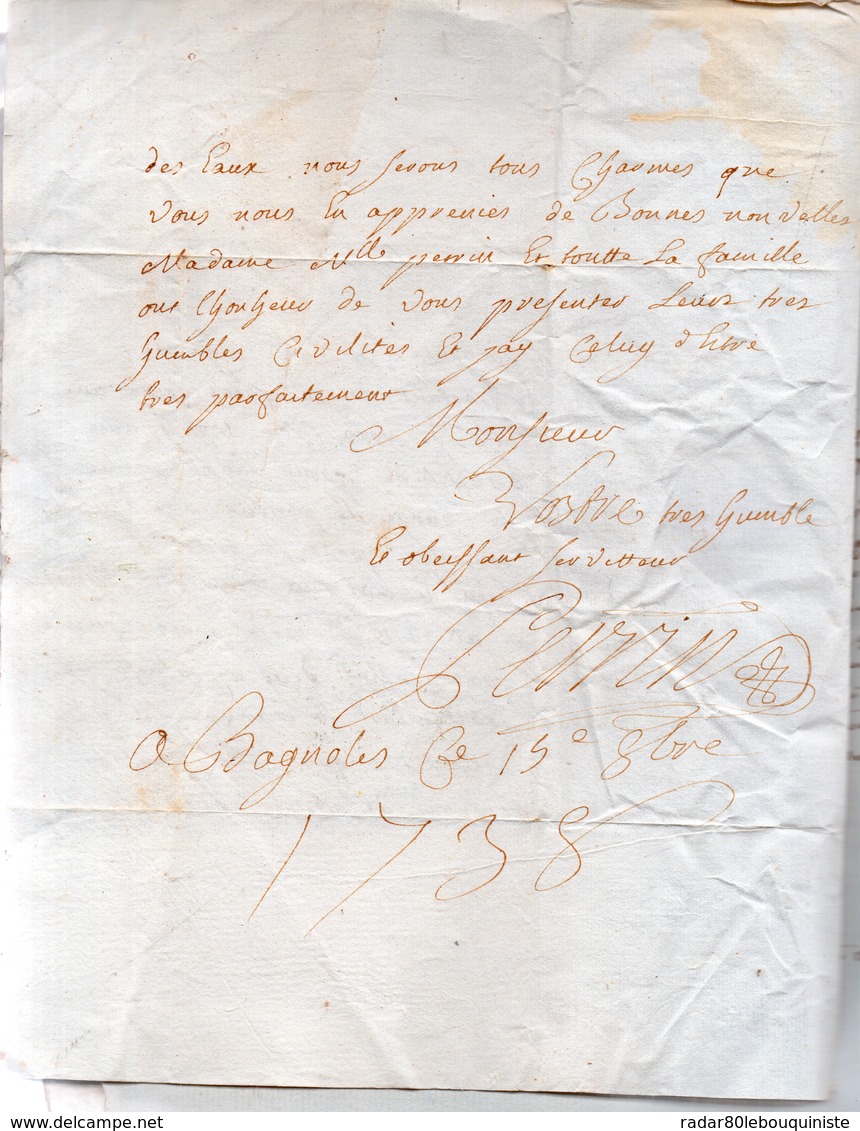 des Eaux nous serons tous Charmes que
vous nous En appreniés de Bonnes nouvelles
Madame Mlle perrin Et toutte La famille
ont lhonneur de vous presenter Leurs tres
humbles Civilités Et jay Celuy d'Estre
tres parfaitement
Monsieur
Vostre tres humble
Et obeissant servitteur
Perrin
A Bagnoles Ce 15e 8bre
1738
radar80lebouquiniste